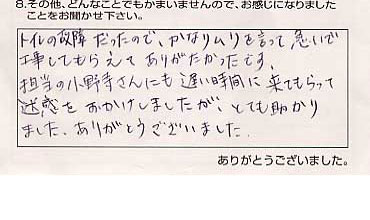 8.その他、どんなことでもかまいませんので、お感じになりました
ことをお聞かせ下さい。
トイレの故障だったので、かなりムリを言って急いで
工事してもらえてありがたかったです。
担当の小野寺さんにも遅い時間に来てもらって
迷惑をおかけしましたが、とても助かり
ました。ありがとうございました。
ありがとうございました。